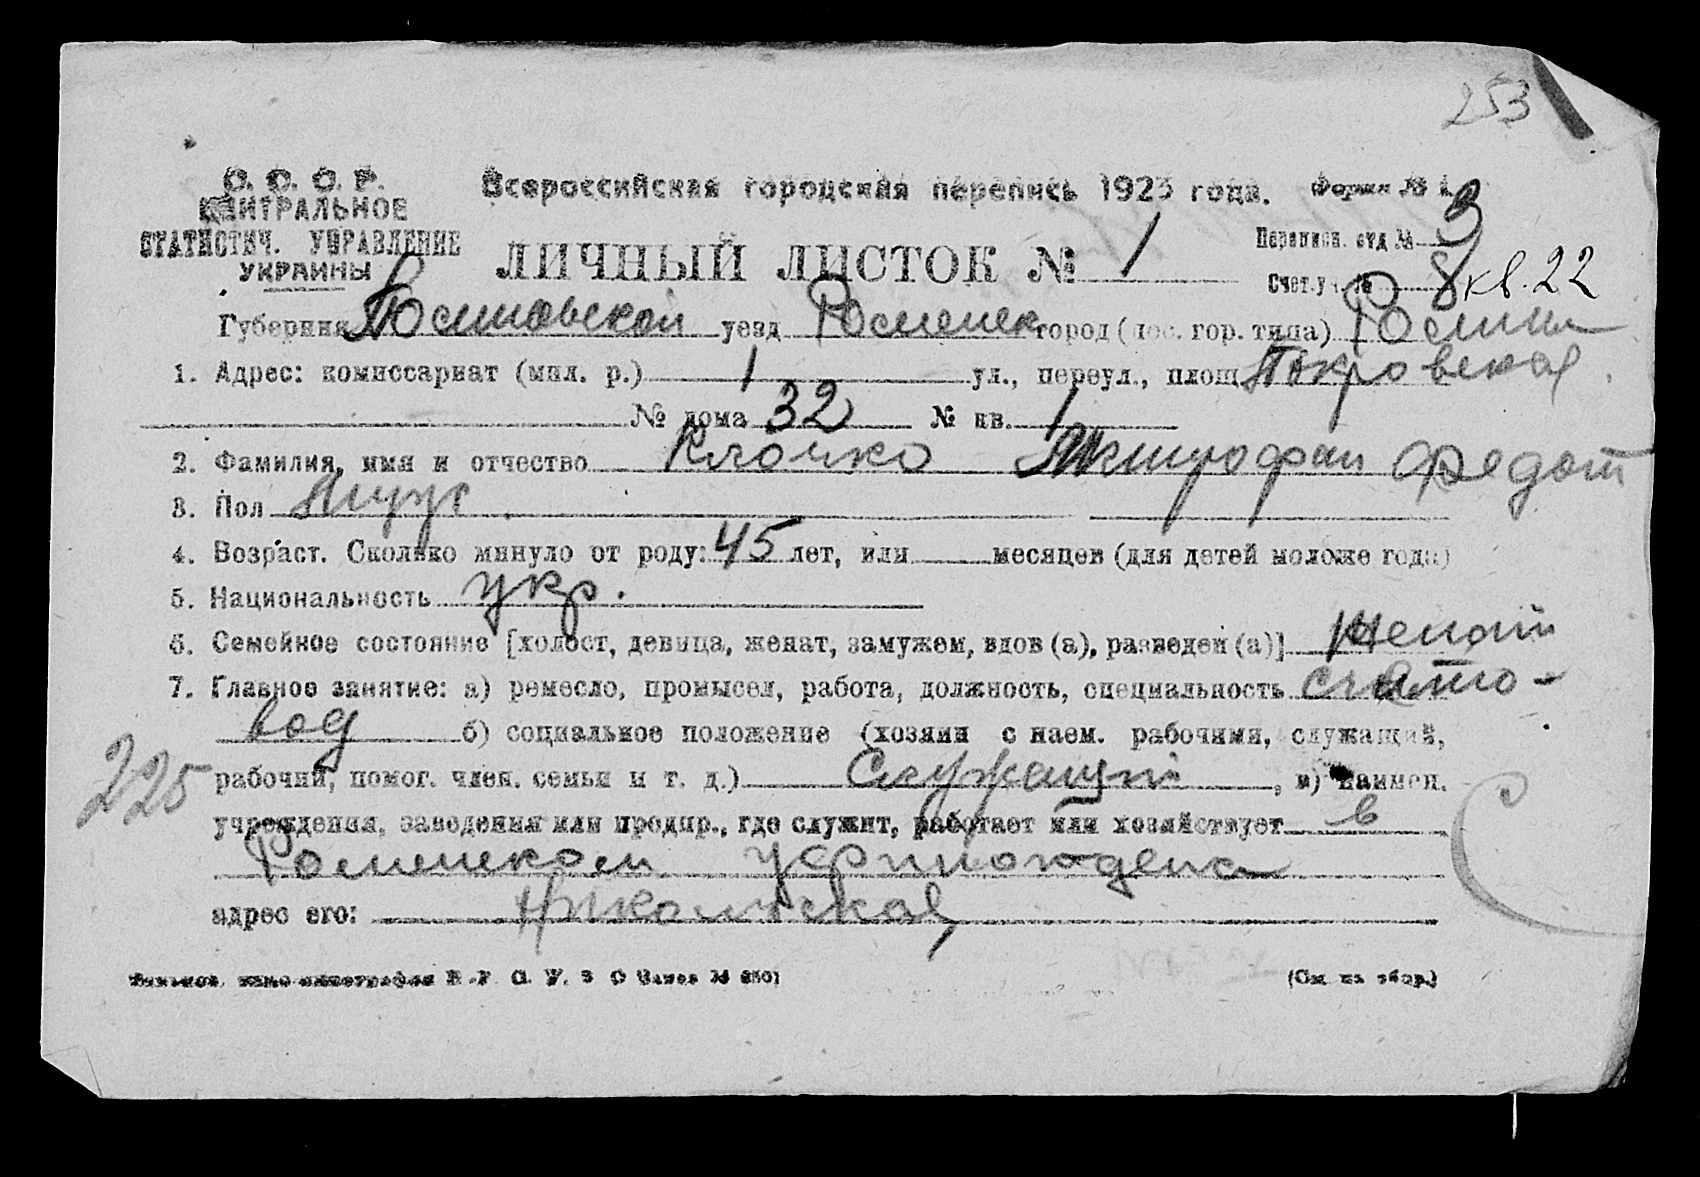 253
С. С. С. Р. Всероссийская городская перепись 1923 года. Форма № 1
ЦЕНТРАЛЬНОЕ
СТАТИСТИЧ. УПРАВЛЕНИЕ
УКРАИНЫ
Переписн. отд № 3
ЛИЧНЫЙ ЛИСТОК № 1
Счет. уч. № 8 кв. 22
Губерния уезд Роменск город (пос. гор. типа) Ромны
1. Адрес: комиссариат (мил. р.) 1 ул., переул., площ Покровская
№ дома 32 № кв. 1
2. Фамилия, имя и отчество Клочко Митрофан Федот
3. Пол Муж
4. Возраст. Сколько минуло от роду: 45 лет, или месяцев (для детей моложе года)
5. Национальность укр.
6. Семейное состояние [холост, девица, женат, замужем, вдов (а), разведен (а)] Женат
7. Главное занятие: а) ремесло, промысел, работа, должность, специальность счето-
вод б) социальное положение (хозяин с наем. рабочими, служащий,
225 рабочий, помог. член. семьи и т. д.) Служащий, в) наимен.
учреждения, заведения или предпр., где служит, работает или хозяйствует в
Роменском
адрес его: Никольская
(См. на обор.)